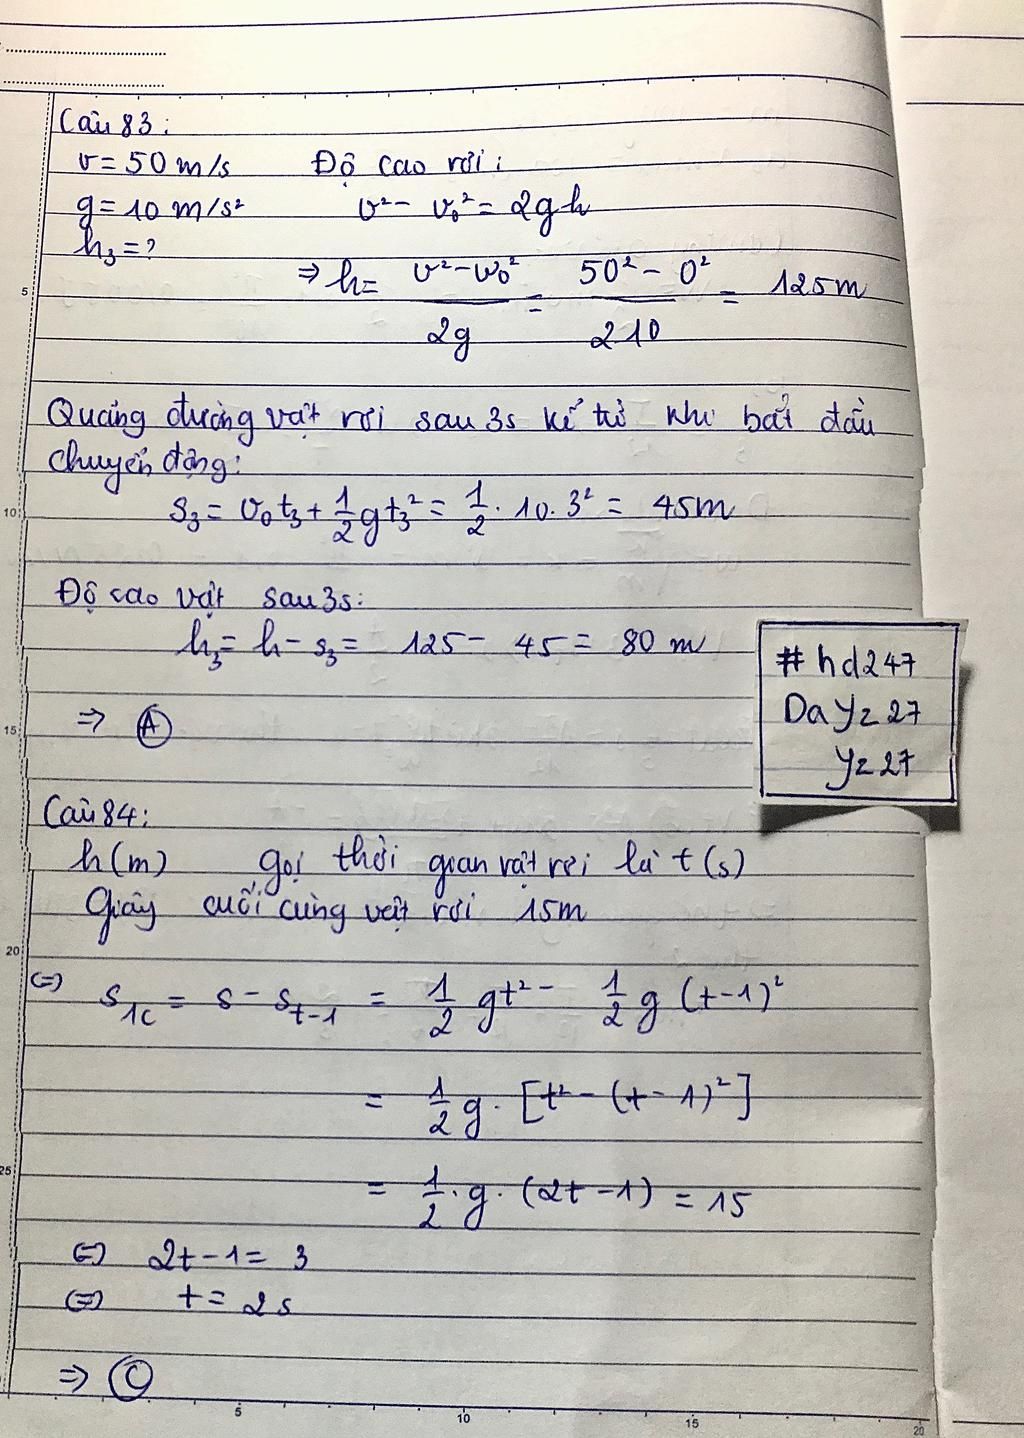 Câu 83:
v = 50 m/s Độ cao rơi:
g = 10 m/s² v² - v₀² = 2gh
h₃ = ?
⇒ h = (v² - v₀²)/2g = (50² - 0²)/2 10 = 125m
5
Quãng đường vật rơi sau 3s kể từ khi bắt đầu
chuyển động:
S₃ = v₀t₃ + 1/2 gt₃² = 1/2 . 10. 3² = 45m
10
Độ cao vật sau 3s:
h₃ = h - s₃ = 125 - 45 = 80 m
#hd247
DaYz27
Yz27
⇒ A
15
Câu 84:
h(m) Gọi thời gian vật rơi là t(s)
Giây cuối cùng vật rơi 15m
20
⇔ S₁c = S - S t-1 = 1/2 gt² - 1/2 g (t-1)²
= 1/2 g. [t² - (t-1)²]
25
= 1/2 . g. (2t-1) = 15
⇔ 2t-1 = 3
⇔ t = 2s
⇒ C
5 10 15 20